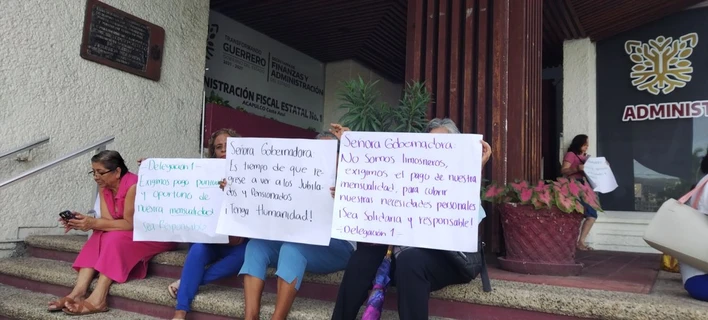 TRANSFORMANDO
GUERRERO
FINANZAS Y
ADMINISTRACIÓN
ADMINISTRACIÓN FISCAL ESTATAL No. 1
ADMINIST
- Delegación 1 -
Exigimos pago puntual
y oportuno de
nuestra mensualidad
Señora Gobernadora:
Es tiempo de que re-
grese a ver a los Jubila-
dos y Pensionados
¡Tenga Humanidad!
Señora Gobernadora
No Somos limosneros,
exigimos el pago de nuestra
mensualidad, para cubrir
nuestras necesidades personales
¡Sea Solidaria y responsable!
- Delegación 1 -